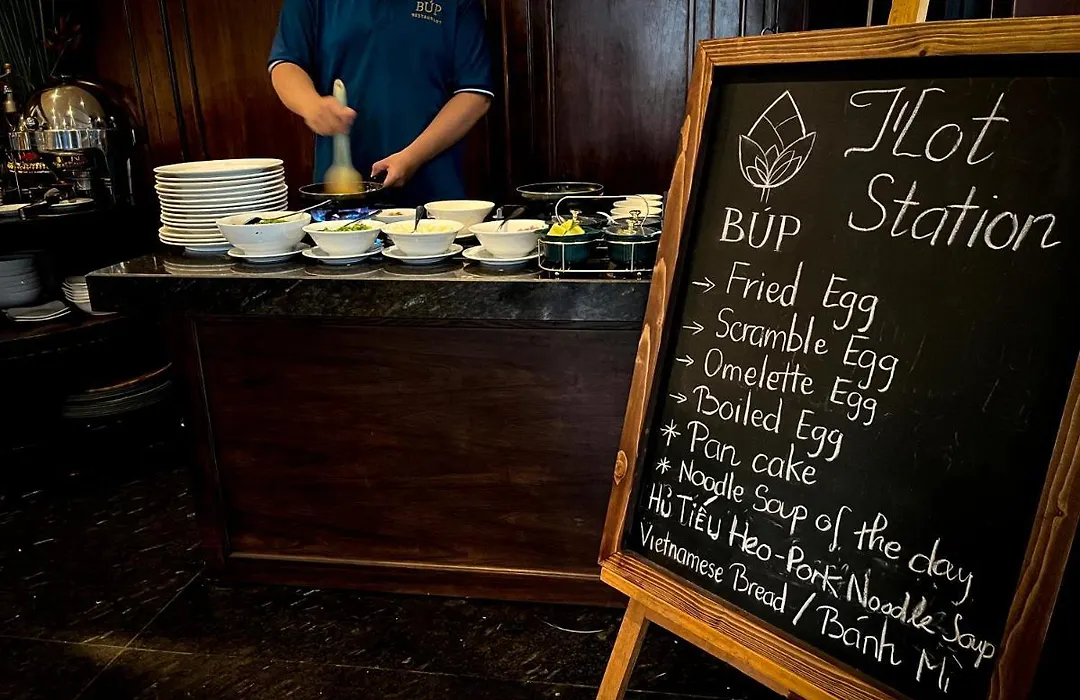 BÚP
RESTAURANT
Hot
Station
BÚP
→ Fried Egg
→ Scramble Egg
→ Omelette Egg
→ Boiled Egg
* Pan cake
* Noodle Soup of the day
Hủ Tiếu Heo-Pork Noodle Soup
Vietnamese Bread / Bánh Mì